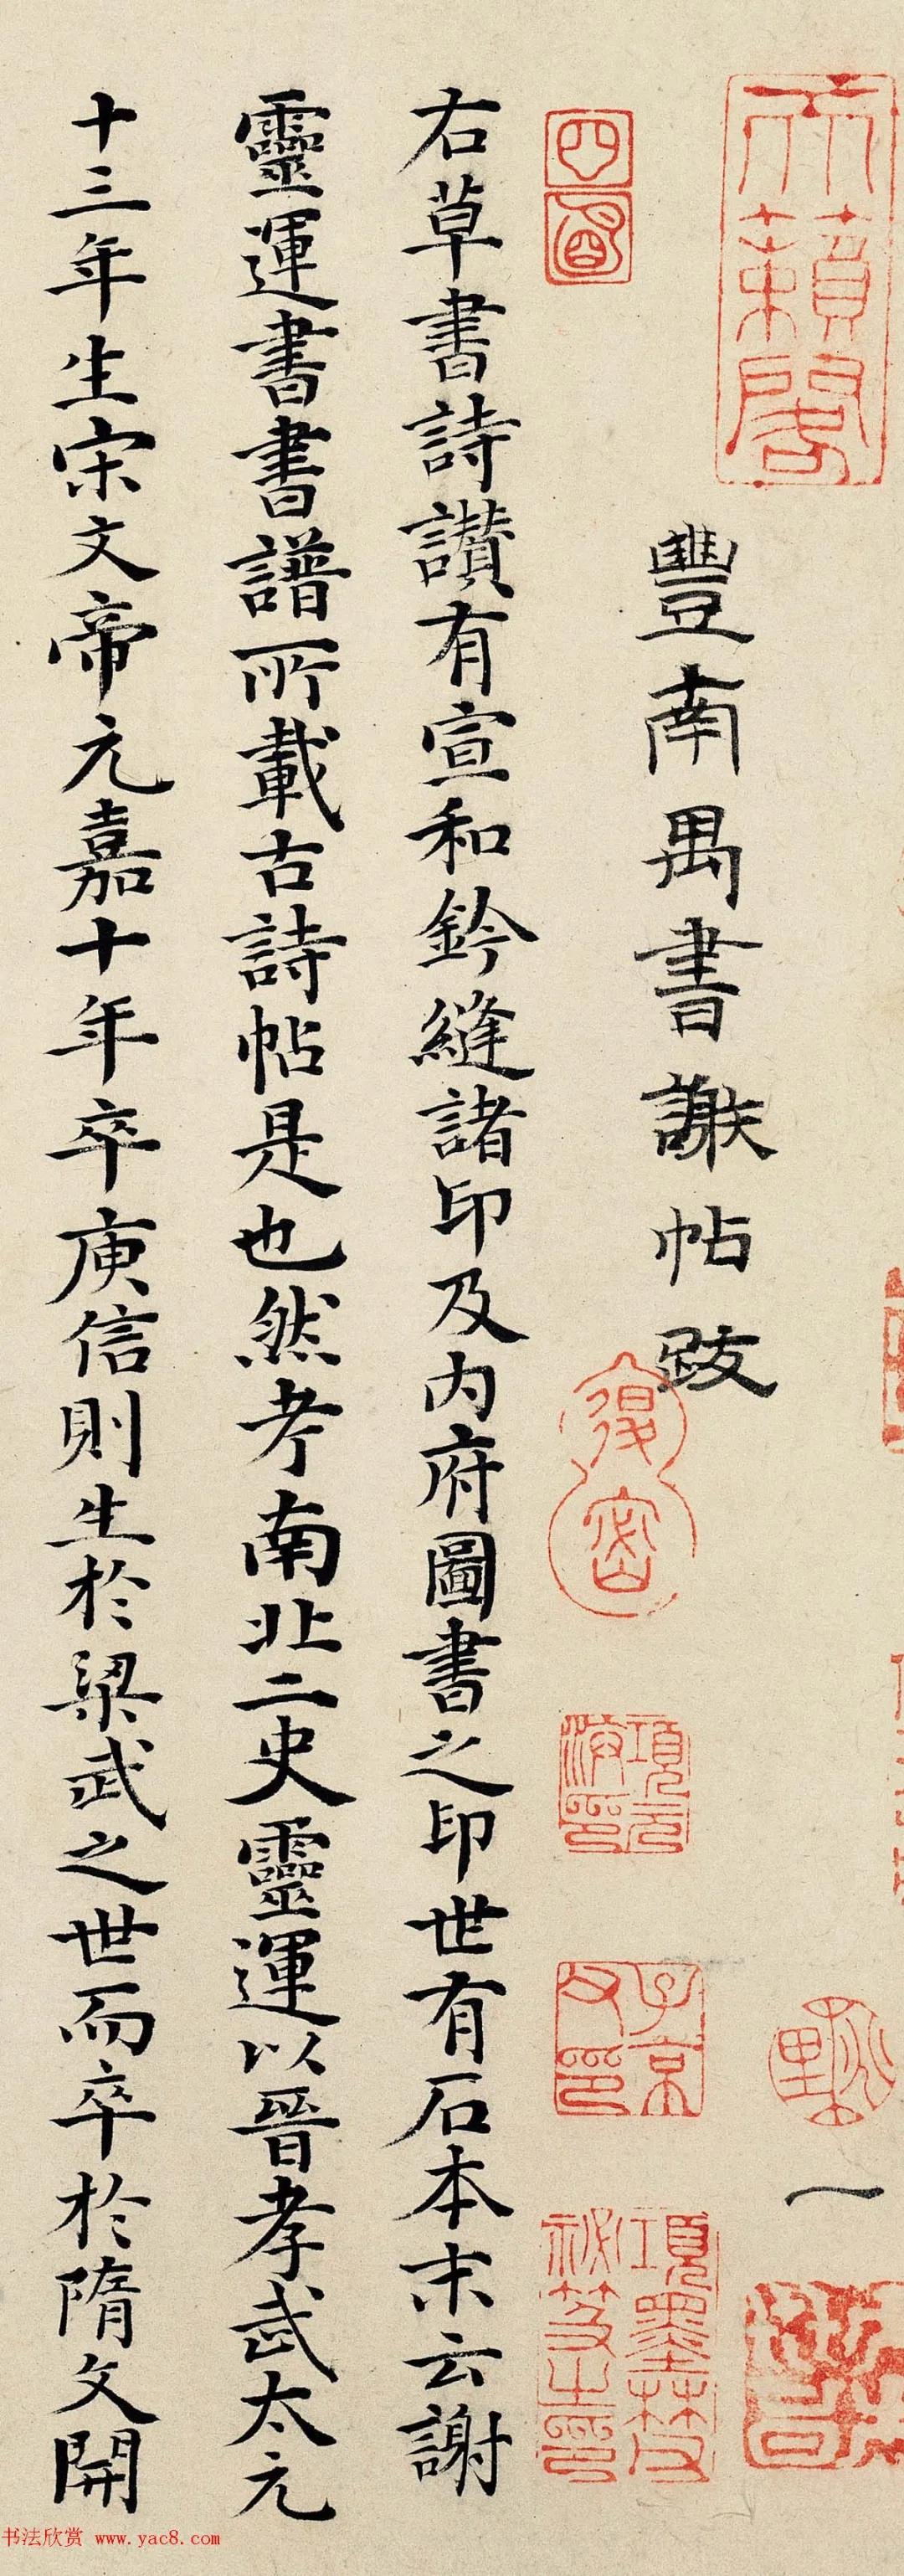 天籟閣
豐南禺書謝帖跋
一
右草書詩讃有宣和鈐縫諸印及内府圖書之印世有石本末云謝
靈運書書譜所載古詩帖是也然考南北二史靈運以晉孝武太元
十三年生宋文帝元嘉十年卒庾信則生於梁武之世而卒於隋文開
項元汴印
子京父印
項墨林父秘笈之印
书法欣赏 www.yac8.com